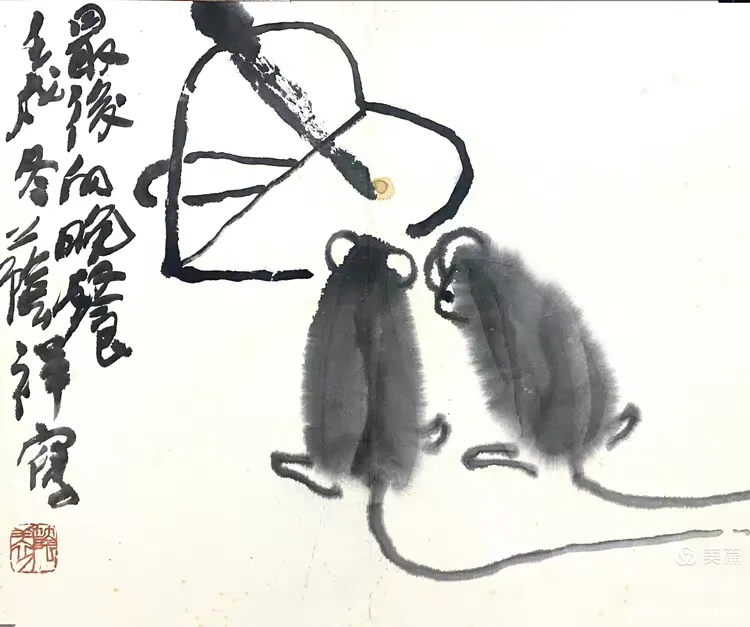 最後的晚餐
壬戌冬蔭祥寫
美篇